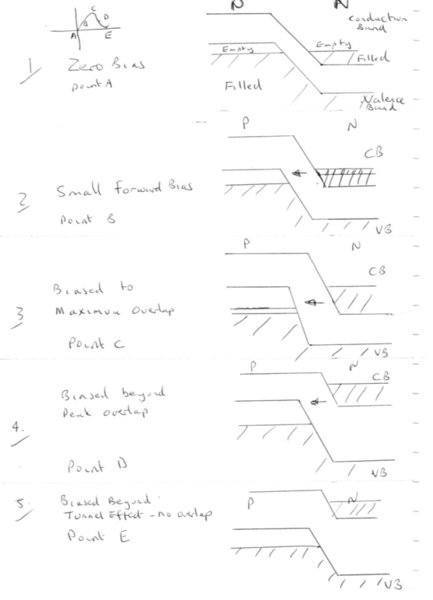 C
B
D
A
E
N
N
Conduction
Band
Empty
Empty
Filled
1/ Zero Bias
Point A
Filled
Valence
Band
P
N
CB
2 Small forward Bias
Point B
VB
P
N
CB
Biased to
3 Maximum overlap
Point C
VB
P
N
CB
Biased beyond
Peak overlap
4.
Point D
VB
5. Biased Beyond
Tunnel Effect - no overlap
Point E
P
N
VB